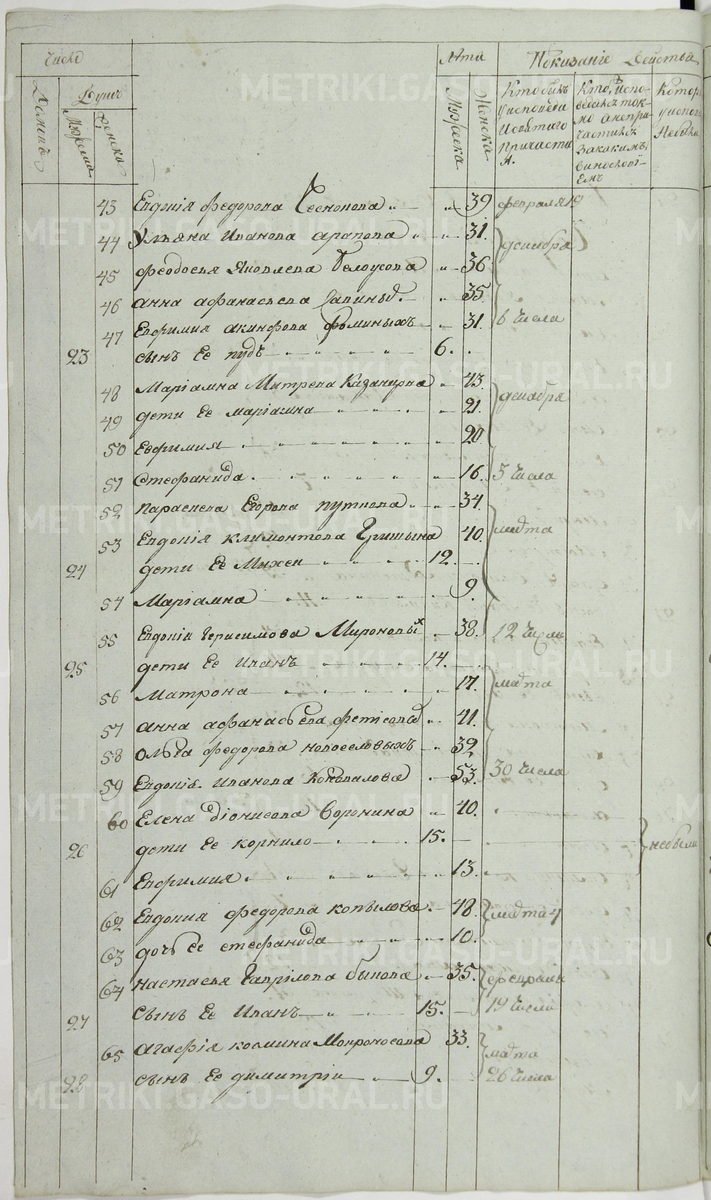 Число
Лѣта
Показаніе Дѣйства
Душъ
Мужеска
Женска
Мужеска
Женска
Кто былъ
у исповѣди
и святаго
причастія
Кто испо-
вѣдался ток-
мо а не при-
частился
за какимъ
винословї-
емъ
43 Евдокія Федорова 39 февраля 19
44 Ульяна Иванова Арапова 31. декабря
45 Феодосья Яковлева Белоусова 36
46 Анна Афанасьева 35
47 Евфимия Акинфова Фоминыхъ 31. 6 числа
23 сынъ Ее 6.
48 Маріамна Митрева Казанцова 43 декабря
49 дети Ее Маріамна 21.
50 Евфимия 20
51 Стефанида 16 5 числа
52 Параскева Егорова Путкова 34 марта
53 Евдокія Климонтова Гришина 40.
24 дети Ее Михеи 12.
54 Маріамна 9
55 Евдокія Герасимова Мироновых 38. 12 числа
25 дети Ее Иванъ 14.
56 Матрона 17. марта
57 Анна Афанасьева 41.
58 Ольга Федорова Новоселовыхъ 32
59 Евдокія Иванова Коновалова 53. 30 числа
60 Елена Діонисова Воронина 40.
26 дети Ее Корнило 15. небыли
61 Евфимия 13.
62 Евдокия Федорова Копылова 48. марта 4
63 дочь Ее Стефанида 10.
64 Настасья Гаврілова Бикова 35. февраля
27 Сынъ Ее Иванъ 15. 19 числа
65 Агафія Космина Мокроносова 33. марта
28 сынъ Ее Димитріи 9. 26 числа
METRIKI.GASO-URAL.RU